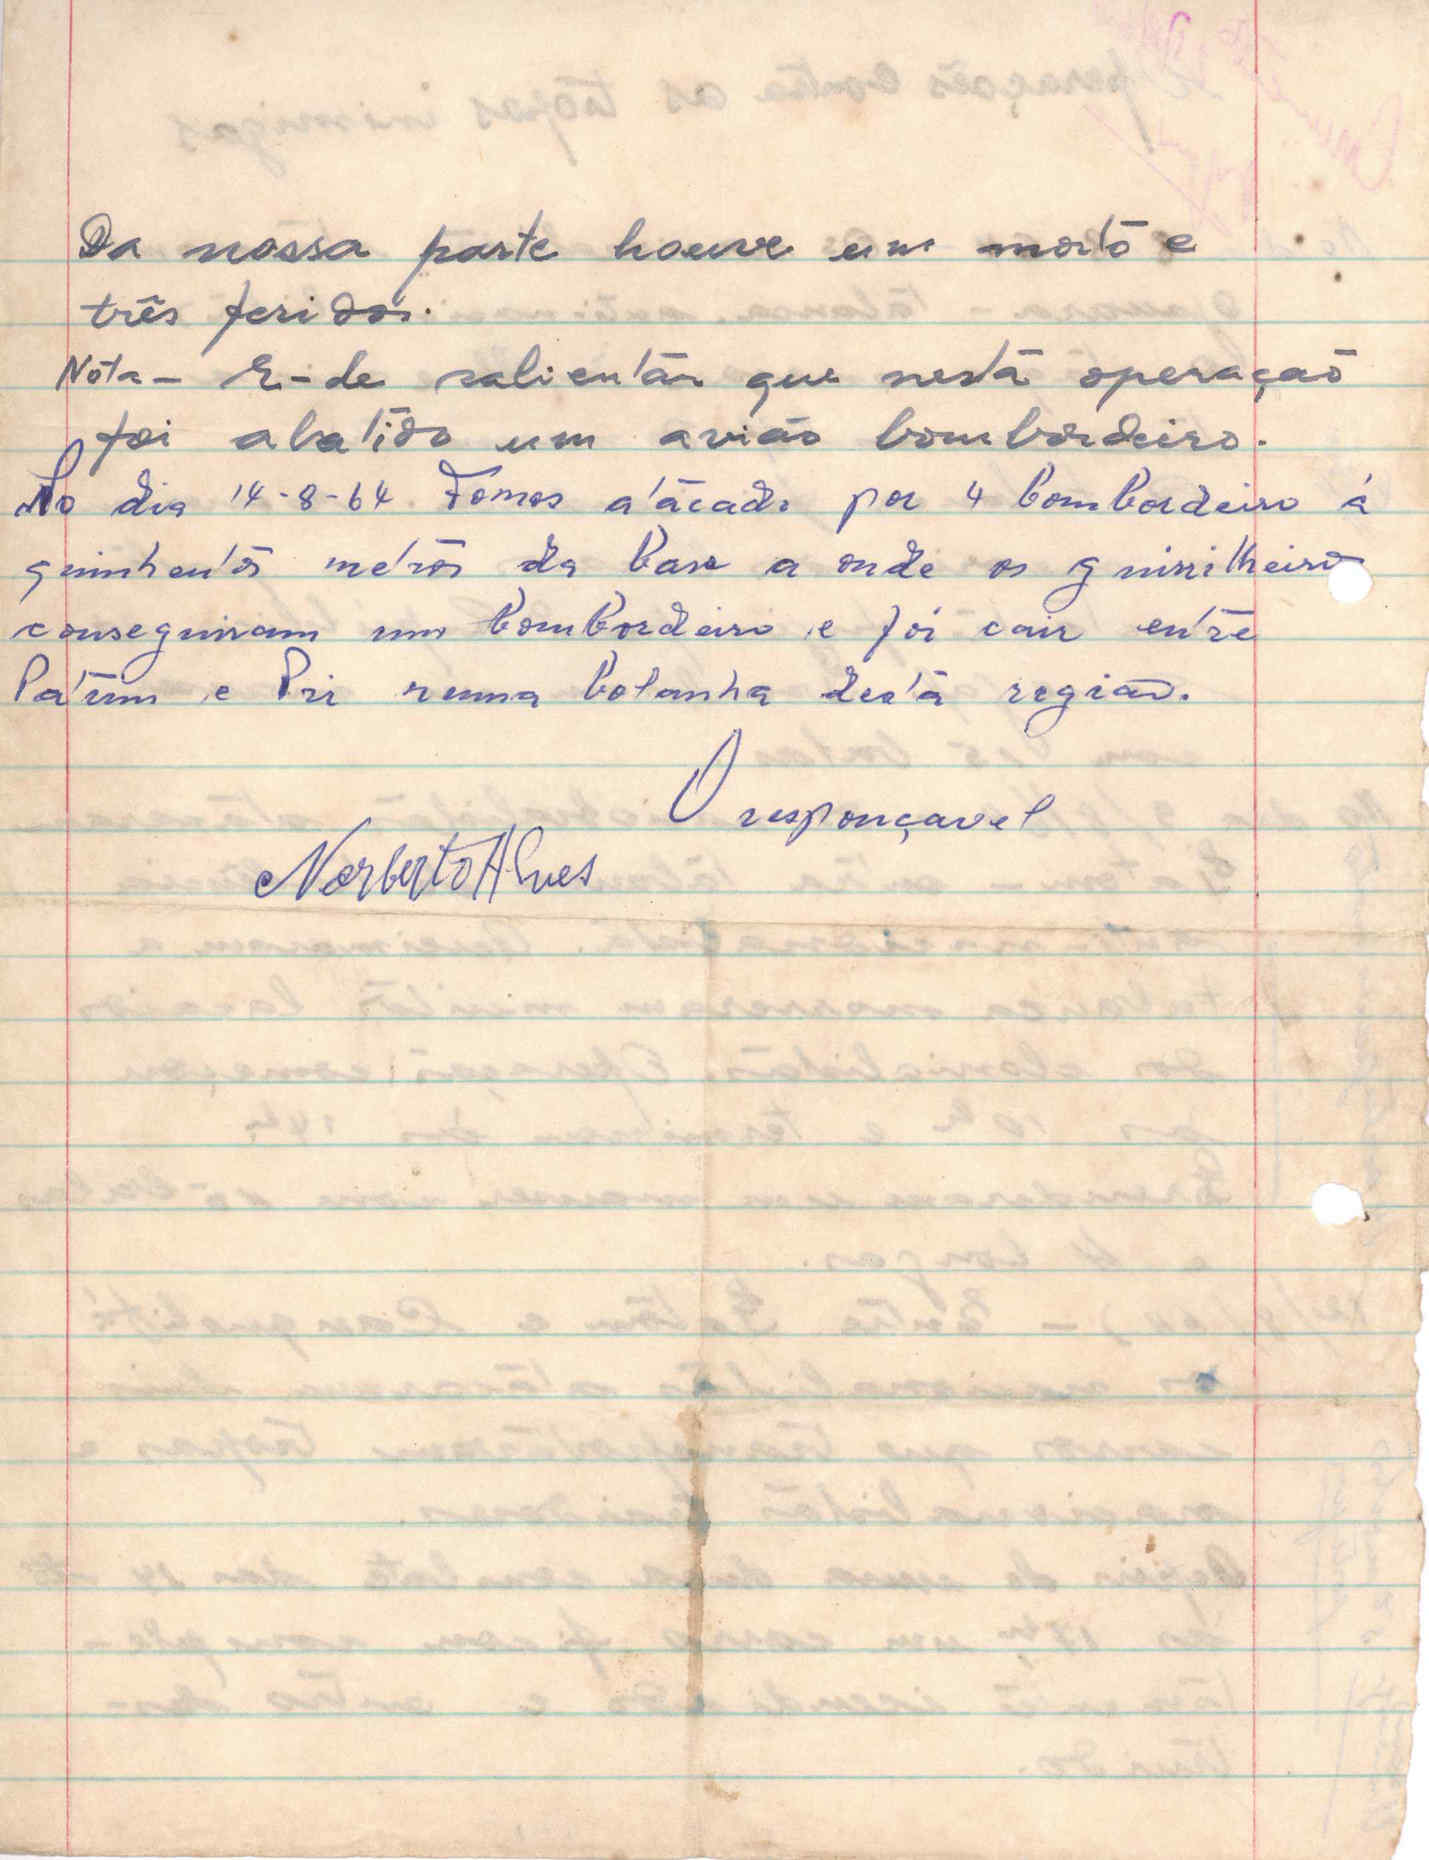 Da nossa parte houve um morto e
três feridos.
Nota- E-de salientar que nesta operação
foi abatido um avião bombordeiro.
No dia 14-8-64 Fomos atacado por 4 bombordeiro á
quinhentos metros da base a onde os guirrilheiro
conseguiram um bombordeiro e foi cair entre
e Pri numa bolanha desta região.
O responçavel
Norberto Alves